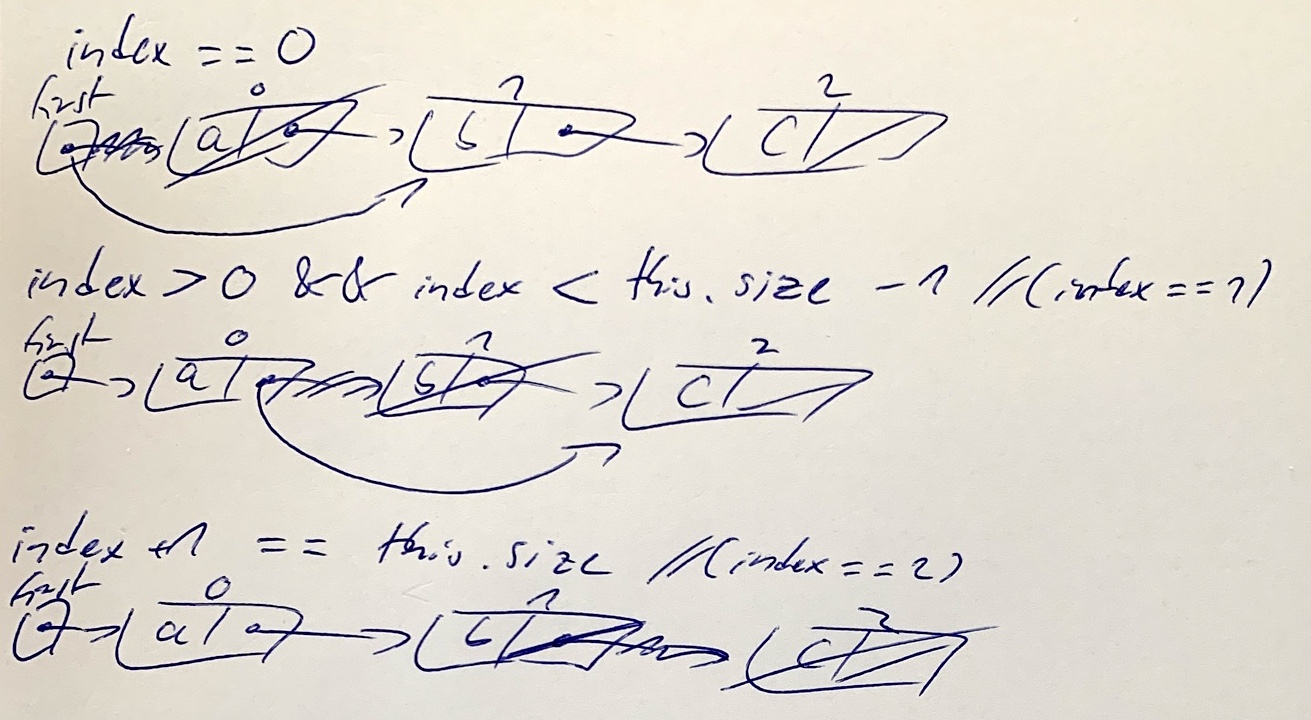 index == 0
first 0 1 2
a b c
index > 0 && index < this.size - 1 //(index == 1)
first 0 1 2
a b c
index + 1 == this.size //(index == 2)
first 0 1 2
a b c